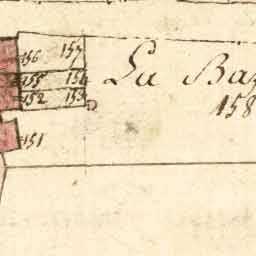 156 157
La Ba
155 154
152 153
158
151